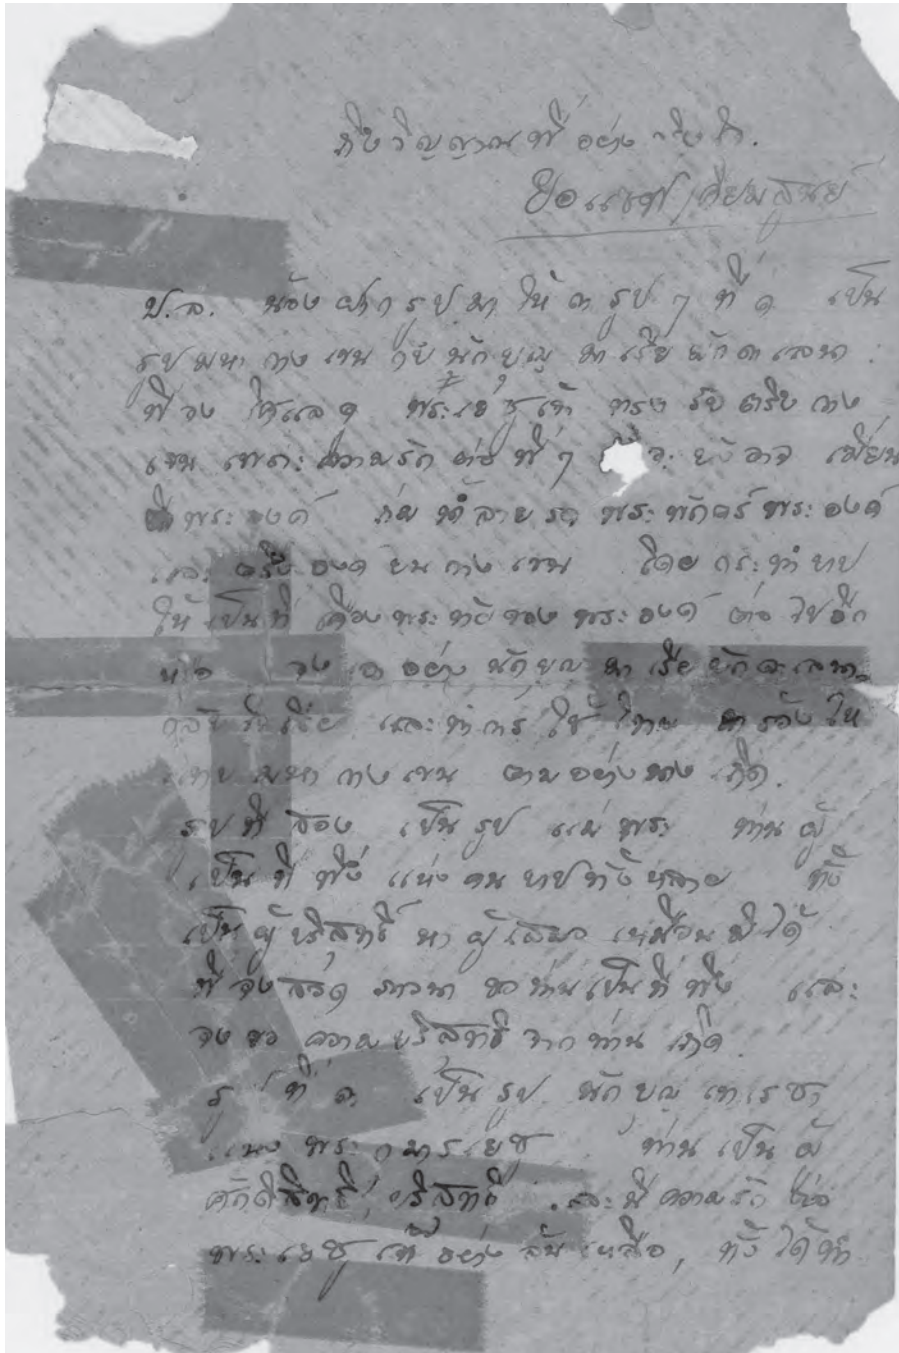 ถึงวิญญาณพี่ อย่าง จริงใจ.
ยอแซฟ เคียมสูนย์
ป.ล. น้อง ฝาก รูป มา ให้ ๓ รูป ๆ ที่ ๑ เป็น
รูป มหา กางเขน กับ นักบุญ มาเรีย มักดาเลนา :
พี่ จง ให้แล ดู พระเยซูเจ้า ทรง รับ ตรึง กาง
เขน เพราะ ความรัก ต่อ พี่ ๆ จะ ยัง อาจ เฆี่ยน
ตี พระองค์ ถ่ม น้ำลาย รด พระพักตร์ พระองค์
และ ตรึง องค์ บน กางเขน โดย กระทำ บาป
ให้ เป็นที่ เคือง พระทัย ของ พระองค์ ต่อ ไป อีก
หรือ จง เอาอย่าง นักบุญ มาเรีย มักดาเลนา
กลับใจเสีย และ ทำการ ใช้ โทษ ร้อง ให้
แทบ มหา กางเขน ตาม อย่าง นาง เถิด.
รูป ที่ สอง เป็น รูป แม่พระ ท่าน ผู้
เป็น ที่ พึ่ง แห่ง คนบาป ทั้งหลาย ทั้ง
เป็น ผู้ บริสุทธิ์ หา ผู้ เสมอ เหมือน มิได้
พี่ จง สวด ภาวนา ขอ ท่าน เป็น ที่ พึ่ง และ
จง ขอ ความ บริสุทธิ์ จาก ท่าน เถิด.
รูป ที่ ๓ เป็น รูป นักบุญ เทเรซา
แห่ง พระกุมารเยซู ท่าน เป็น ผู้
ศักดิ์สิทธิ์, บริสุทธิ์ และ มี ความรัก ต่อ
พระเยซูเจ้า อย่าง ล้นเหลือ, ทั้ง ได้ ทำ